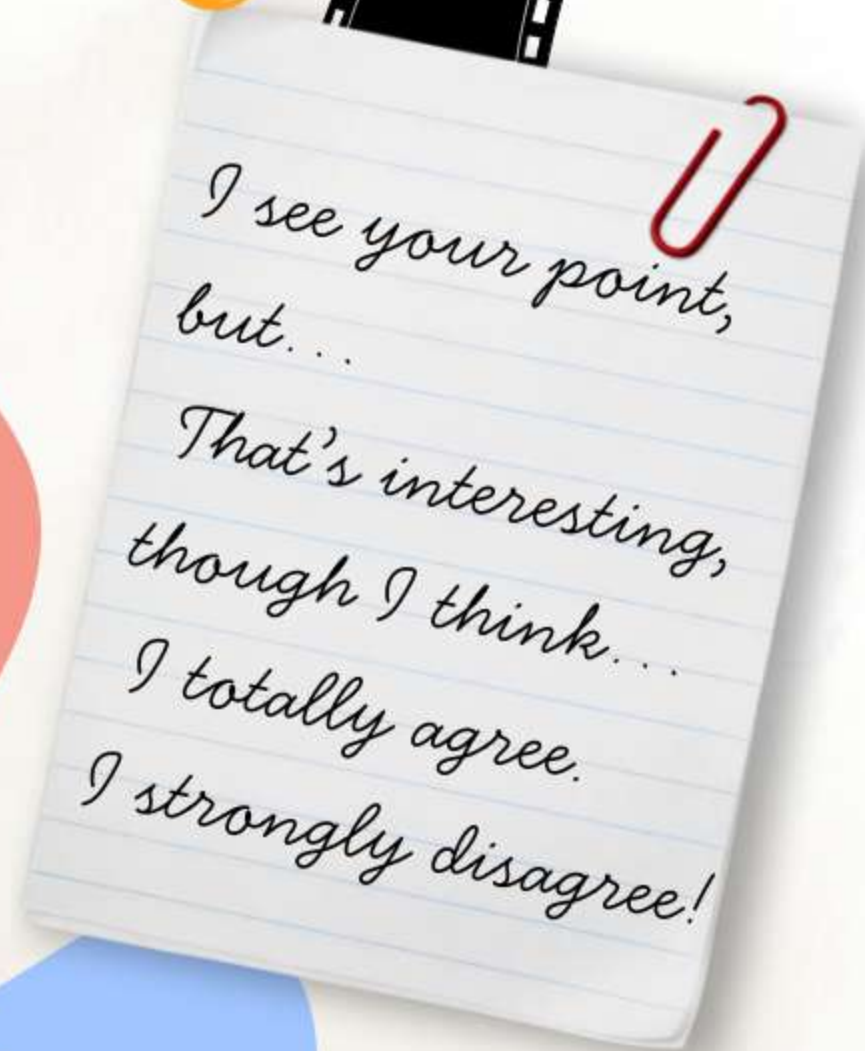 I see your point,
but...
That's interesting,
though I think...
I totally agree.
I strongly disagree!